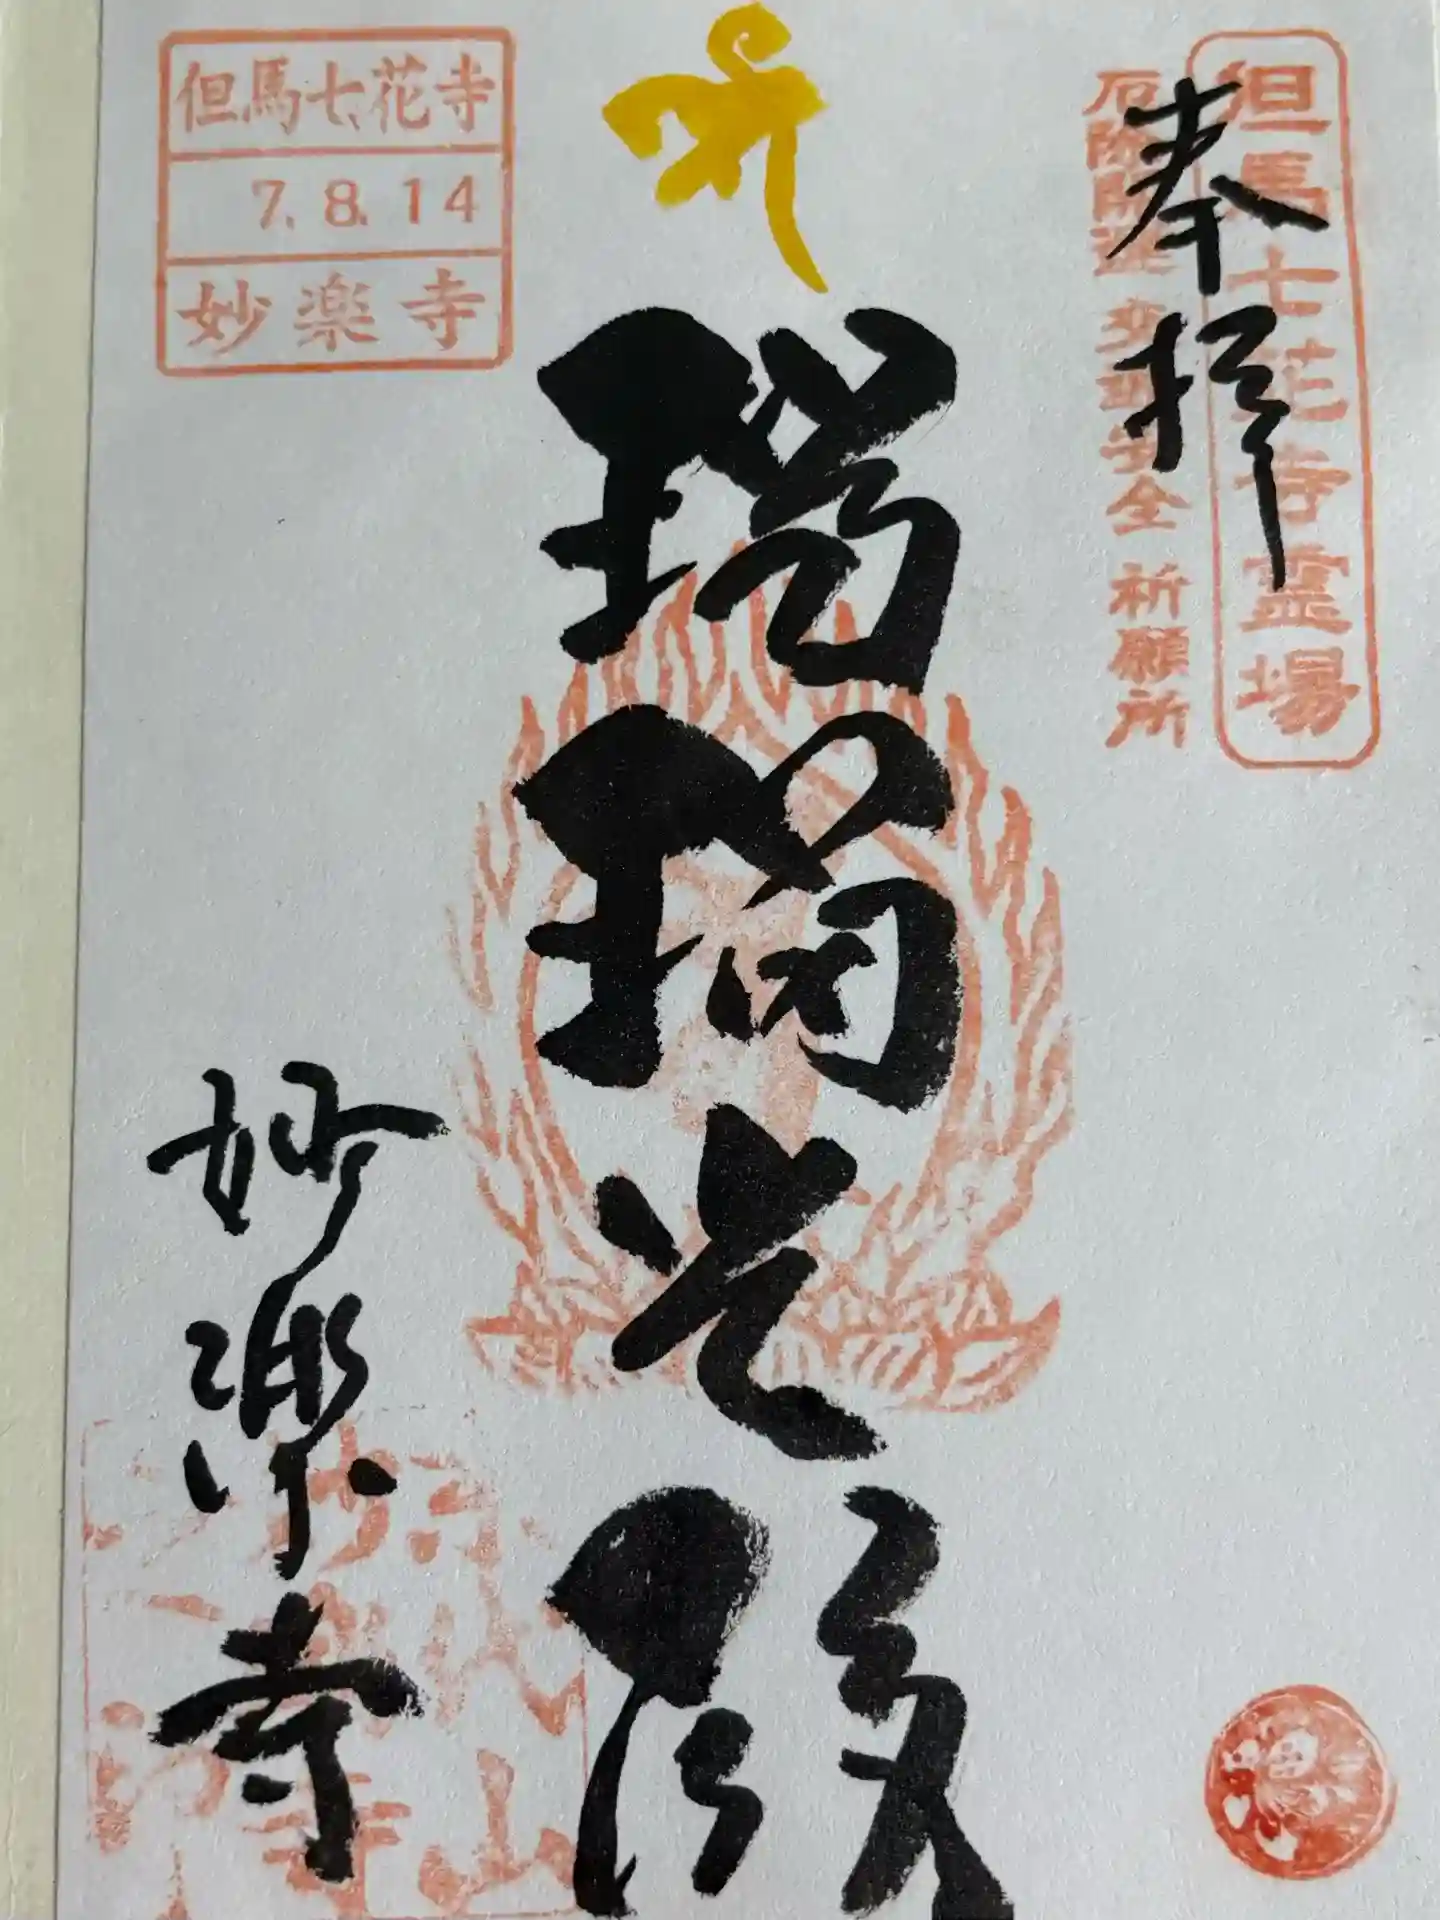 但馬七花寺霊場
奉拝
厄除開運 交通安全 祈願所
瑠璃光殿
妙楽寺
但馬七花寺
7.8.14
妙楽寺